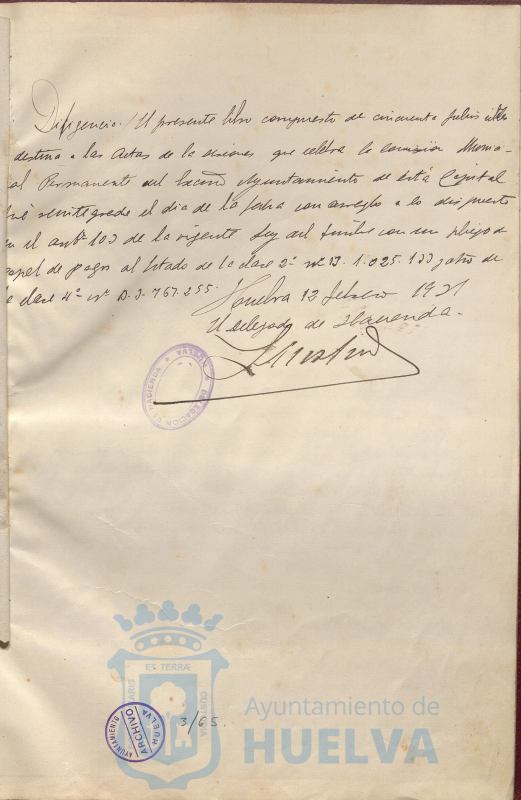 Diligencia / El presente libro compuesto de cincuenta folios útiles
destina a las Actas de la sesiones que celebra la comision Munici-
al Permanente del Excmo Ayuntamiento de esta Capital
fué reintegrado el dia de la fecha con arreglo a lo dispuesto
en el artº 103 de la vigente Ley del timbre con un pliego de
papel de pagos al Estado de la clase 2ª nº B. 1.025.133 y otro de
la clase 4ª nº D.3.767.255.
Huelva 12 febrero 1931
El delegado de Hacienda.
DELEGACION DE HACIENDA
HUELVA
ET TERRÆ
MARIS
CUSTODIA
AYUNTAMIENTO
HUELVA
ARCHIVO
3/65.
Ayuntamiento de
HUELVA